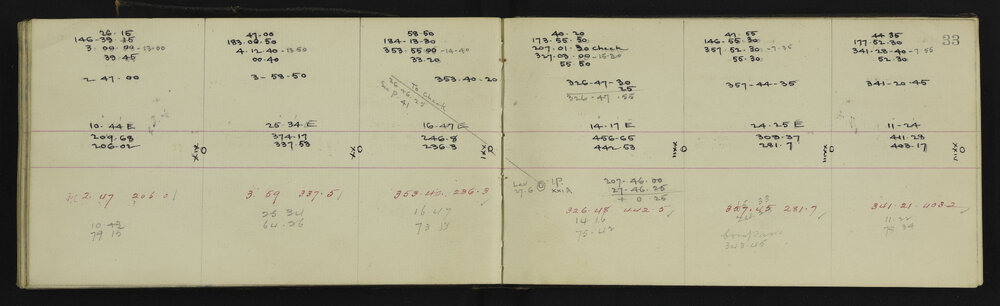 26.15
146-39.15
3.00.00-13.00
39.45
2-47.00
10.44 E
209.68
206.02
XIX
2.47 206.01
10 42
79 15
47.00
183.09.50
4.12.40-13.50
00.40
3-59.50
25-34 E
374.17
337.53
XX
3.59 337.51
25 34
64.26
58.50
184.13.30
353.55.00-14.40
33.20
353.40.20
To Check
26.46.25
See p
41
16-47 E
246.8
236.3
XXI
353-40. 236.3
16 47
73 13
40.20
173.55.50
207.01.30 check
327.03.00-15.30
55 50
326-47-30
25
326-47.55
14.17 E
456.65
442.53
XXII
Lev
27.6
I.P.
XXI A
207.46.00
27-46.25
+ 0 25
326-48 442-5
14 16
75-42
47.55
146.55.30
357.52.30-7.35
55.30
357-44-35
24.25 E
303.37
281.7
XXIII
357.45 281.7
343.45
33
44 35
177.52.30
341-28-40-7.55
52.30
341-20-45
11-24
411.23
403.17
XXIV
341.21 403.2
11.22
78 34